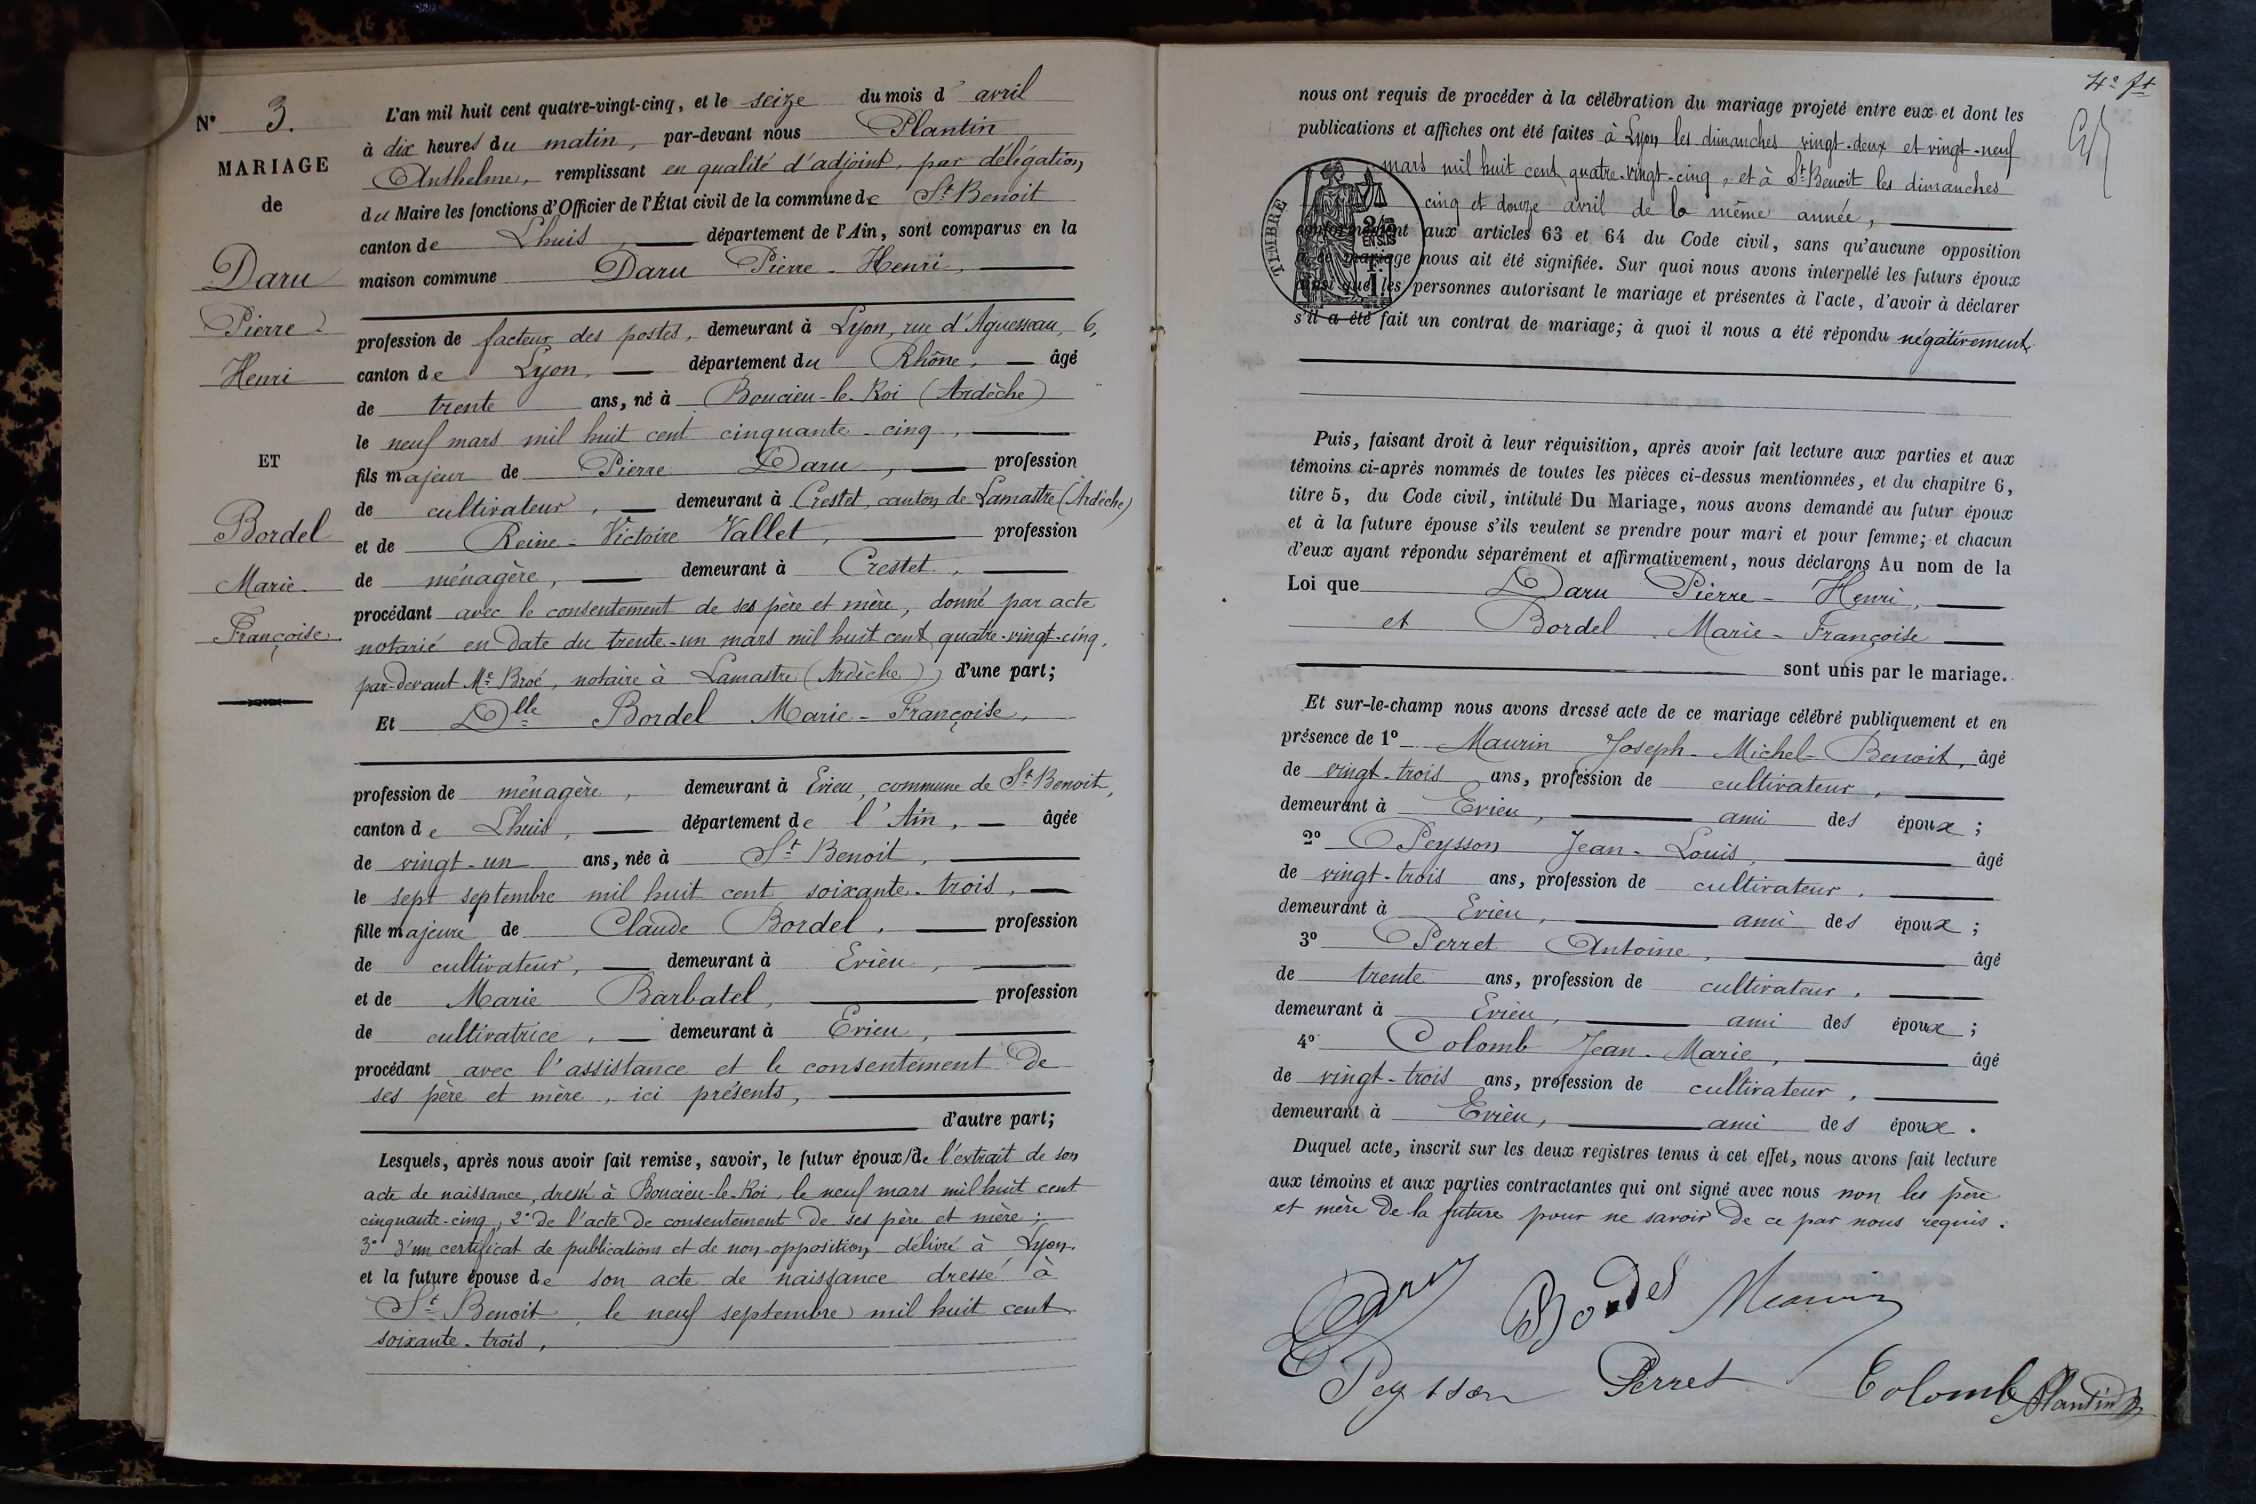 N° 3.
MARIAGE
de
Daru
Pierre
Henri
ET
Bordel
Marie
Françoise
L'an mil huit cent quatre-vingt-cinq, et le seize du mois d' avril
à dix heures du matin, par-devant nous Plantin
Anthelme, remplissant en qualité d'adjoint, par délégation,
du Maire les fonctions d'Officier de l'État civil de la commune de St Benoit
canton de Lhuis, département de l'Ain, sont comparus en la
maison commune Daru Pierre-Henri,
profession de facteur des postes, demeurant à Lyon, rue d'Aguesseau, 6,
canton de Lyon, département du Rhône, âgé
de trente ans, né à Boucieu-le-Roi (Ardèche)
le neuf mars mil huit cent cinquante-cinq,
fils majeur de Pierre Daru, profession
de cultivateur, demeurant à Crestet, canton de Lamastre (Ardèche)
et de Reine-Victoire Vallet, profession
de ménagère, demeurant à Crestet,
procédant avec le consentement de ses père et mère, donné par acte
notarié en date du trente-un mars mil huit cent quatre-vingt-cinq,
par-devant Me Broé, notaire à Lamastre (Ardèche), d'une part;
Et Dlle Bordel Marie-Françoise,
profession de ménagère, demeurant à Evieu, commune de St Benoit,
canton de Lhuis, département de l'Ain, âgée
de vingt-un ans, née à St Benoit,
le sept septembre mil huit cent soixante-trois,
fille majeure de Claude Bordel, profession
de cultivateur, demeurant à Evieu,
et de Marie Barbatel, profession
de cultivatrice, demeurant à Evieu,
procédant avec l'assistance et le consentement de
ses père et mère, ici présents,
d'autre part;
Lesquels, après nous avoir fait remise, savoir, le futur époux 1° de l'extrait de son
acte de naissance, dressé à Boucieu-le-Roi, le neuf mars mil huit cent
cinquante-cinq, 2° de l'acte de consentement de ses père et mère;
3° d'un certificat de publications et de non-opposition délivré à Lyon.
et la future épouse de son acte de naissance dressé à
St Benoit, le neuf septembre mil huit cent
soixante-trois,
4e ft
nous ont requis de procéder à la célébration du mariage projeté entre eux et dont les
publications et affiches ont été faites à Lyon les dimanches vingt-deux et vingt-neuf
mars mil huit cent quatre-vingt-cinq, et à St Benoit les dimanches
cinq et douze avril de la même année,
TIMBRE
2/10
EN SUS
conformément aux articles 63 et 64 du Code civil, sans qu'aucune opposition
à ce mariage nous ait été signifiée. Sur quoi nous avons interpellé les futurs époux
ainsi que les personnes autorisant le mariage et présentes à l'acte, d'avoir à déclarer
s'il a été fait un contrat de mariage; à quoi il nous a été répondu négativement
Puis, faisant droit à leur réquisition, après avoir fait lecture aux parties et aux
témoins ci-après nommés de toutes les pièces ci-dessus mentionnées, et du chapitre 6,
titre 5, du Code civil, intitulé Du Mariage, nous avons demandé au futur époux
et à la future épouse s'ils veulent se prendre pour mari et pour femme; et chacun
d'eux ayant répondu séparément et affirmativement, nous déclarons Au nom de la
Loi que Daru Pierre-Henri,
et Bordel Marie-Françoise
sont unis par le mariage.
Et sur-le-champ nous avons dressé acte de ce mariage célébré publiquement et en
présence de 1° Maurin Joseph-Michel-Benoit, âgé
de vingt-trois ans, profession de cultivateur,
demeurant à Evieu, ami des époux;
2° Peysson Jean-Louis, âgé
de vingt-trois ans, profession de cultivateur,
demeurant à Evieu, ami des époux;
3° Perret Antoine, âgé
de trente ans, profession de cultivateur,
demeurant à Evieu, ami des époux;
4° Colomb Jean-Marie, âgé
de vingt-trois ans, profession de cultivateur,
demeurant à Evieu, ami des époux.
Duquel acte, inscrit sur les deux registres tenus à cet effet, nous avons fait lecture
aux témoins et aux parties contractantes qui ont signé avec nous non les père
et mère de la future pour ne savoir de ce par nous requis.
Daru Bordel Maurin
Peysson Perret Colomb Plantin